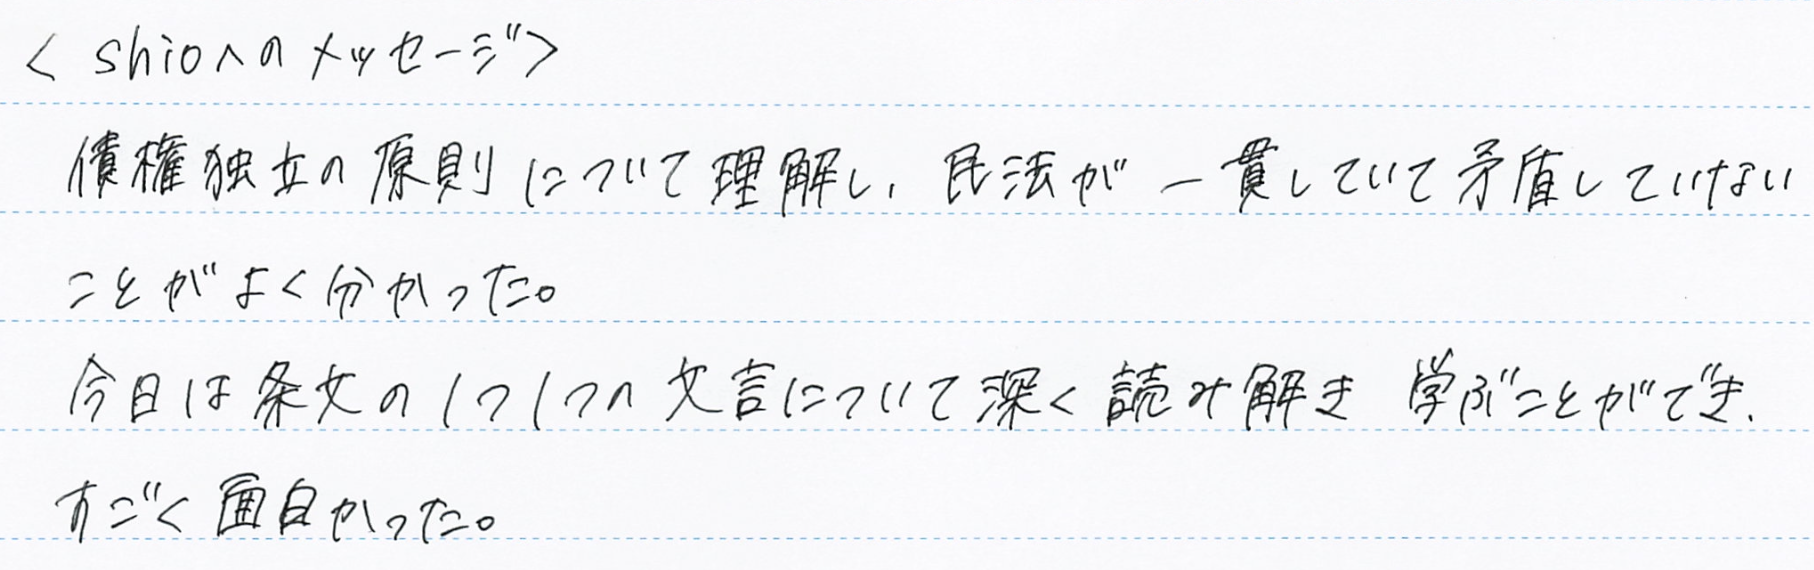 < shioへのメッセージ>
債権独立の原則について理解し、民法が一貫していて矛盾していない
ことがよく分かった。
今日は条文の1つ1つの文言について深く読み解き学ぶことができ、
すごく面白かった。